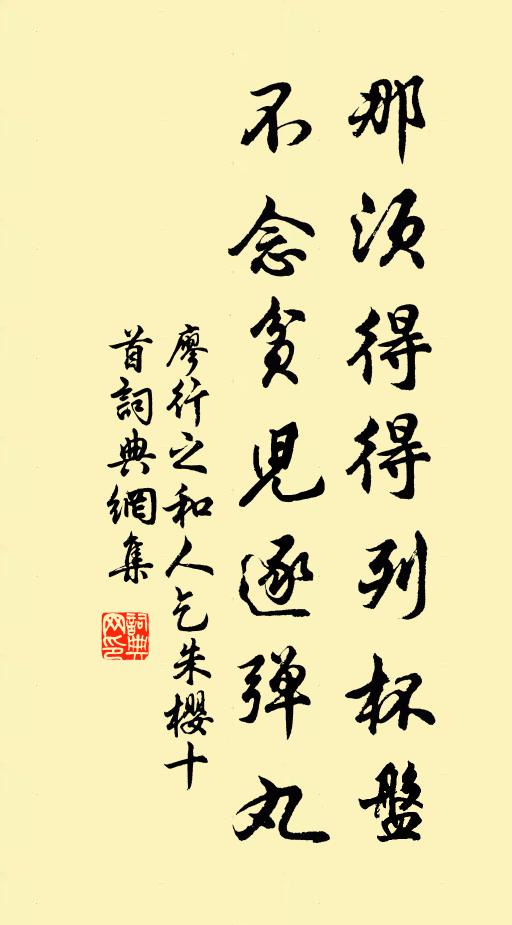 那须得得列杯盤
不念貧児逐弹丸
廖行之和人乞朱櫻十
首詞典網集
詞典
网印